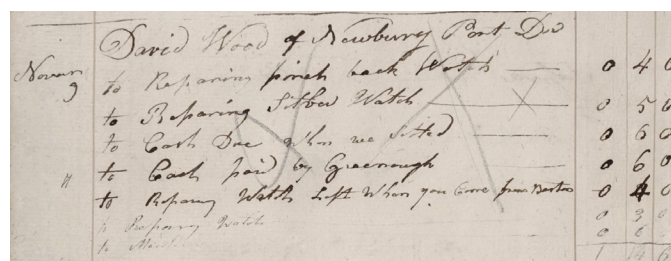 David Wood of Newbury Port Dr
Novem 9 to Repairing pinch back Watch 0 4 0
to Repairing Silber Watch 0 5 6
to Cash Due when we sitted 0 6 0
to Cash paid by Greenough 0 6 0
11 to Repairing Watch Left When you Come from Boston 0 4 0
to Repairing Watch 0 3 0
to 0 6
1